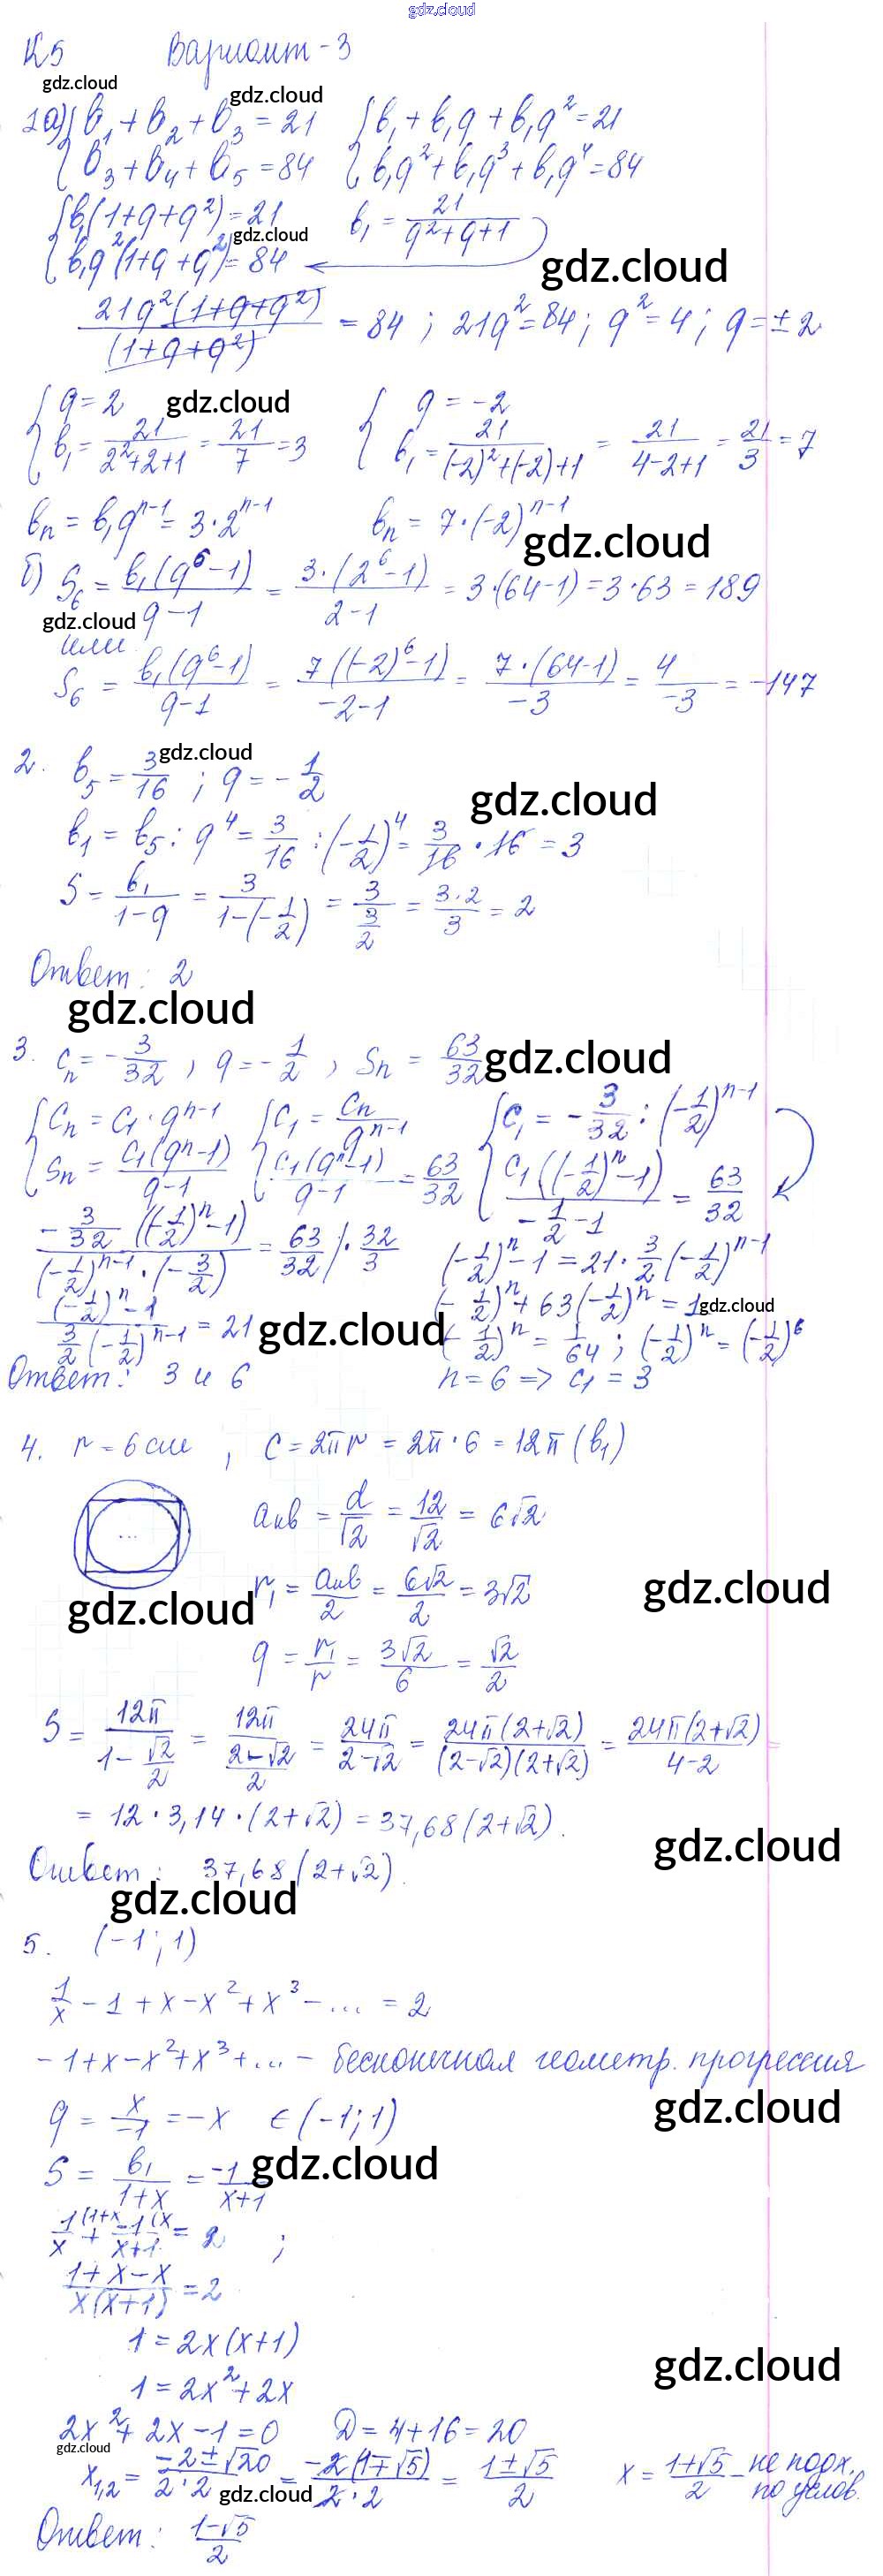 gdz.cloud
К5 Вариант-3
gdz.cloud gdz.cloud
1 а) { b₁ + b₂ + b₃ = 21 { b₁ + b₁q + b₁q² = 21
{ b₃ + b₄ + b₅ = 84 { b₁q² + b₁q³ + b₁q⁴ = 84
{ b₁(1+q+q²) = 21 b₁ = 21/(q²+q+1)
gdz.cloud
{ b₁q²(1+q+q²) = 84
gdz.cloud
21q²(1+q+q²)/(1+q+q²) = 84 ; 21q² = 84 ; q² = 4 ; q = ±2
{ q = 2 gdz.cloud { q = -2
{ b₁ = 21/(2²+2+1) = 21/7 = 3 { b₁ = 21/((-2)²+(-2)+1) = 21/(4-2+1) = 21/3 = 7
bₙ = b₁qⁿ⁻¹ = 3·2ⁿ⁻¹ bₙ = 7·(-2)ⁿ⁻¹
gdz.cloud
б) S₆ = b₁(q⁶-1)/(q-1) = 3·(2⁶-1)/(2-1) = 3·(64-1) = 3·63 = 189
gdz.cloud
или
S₆ = b₁(q⁶-1)/(q-1) = 7((-2)⁶-1)/(-2-1) = 7·(64-1)/(-3) = 4/(-3) = -147
gdz.cloud
2. b₅ = 3/16 ; q = -1/2
gdz.cloud
b₁ = b₅ : q⁴ = 3/16 : (-1/2)⁴ = 3/16 · 16 = 3
S = b₁/(1-q) = 3/(1-(-1/2)) = 3/(3/2) = 3·2/3 = 2
Ответ: 2
gdz.cloud
3. cₙ = -3/32 , q = -1/2 , Sₙ = 63/32
gdz.cloud
{ cₙ = c₁·qⁿ⁻¹ { c₁ = cₙ/qⁿ⁻¹ { c₁ = -3/32 : (-1/2)ⁿ⁻¹
{ Sₙ = c₁(qⁿ-1)/(q-1) { c₁(qⁿ-1)/(q-1) = 63/32 { c₁((-1/2)ⁿ-1)/(-1/2-1) = 63/32
-3/32((-1/2)ⁿ-1)/((-1/2)ⁿ⁻¹·(-3/2)) = 63/32 |·32/3 (-1/2)ⁿ-1 = 21·3/2(-1/2)ⁿ⁻¹
((-1/2)ⁿ-1)/(3/2(-1/2)ⁿ⁻¹) = 21 (-1/2)ⁿ + 63(-1/2)ⁿ = 1
gdz.cloud gdz.cloud
(-1/2)ⁿ = 1/64 ; (-1/2)ⁿ = (-1/2)⁶
Ответ: 3 и 6 n = 6 => c₁ = 3
4. r = 6 см , C = 2πr = 2π·6 = 12π (b₁)
aкв = d/√2 = 12/√2 = 6√2
r₁ = aкв/2 = 6√2/2 = 3√2
gdz.cloud
gdz.cloud
q = r₁/r = 3√2/6 = √2/2
S = 12π/(1-√2/2) = 12π/((2-√2)/2) = 24π/(2-√2) = 24π(2+√2)/((2-√2)(2+√2)) = 24π(2+√2)/(4-2) =
= 12·3,14·(2+√2) = 37,68(2+√2).
gdz.cloud
Ответ: 37,68(2+√2).
gdz.cloud
5. (-1; 1)
1/x - 1 + x - x² + x³ - ... = 2
-1+x-x²+x³+... - бесконечная геометр. прогрессия
gdz.cloud
q = x/-1 = -x ∈ (-1; 1)
S = b₁/(1+x) = -1/(x+1)
gdz.cloud
1/x (1+x + -1/(x+1) (x = 2 ;
(1+x-x)/(x(x+1)) = 2
1 = 2x(x+1)
gdz.cloud
1 = 2x²+2x
2x²+2x-1=0 D = 4+16=20
gdz.cloud
x₁,₂ = (-2±√20)/(2·2) = -2(1∓√5)/(2·2) = (1±√5)/2 x = (1+√5)/2 - не подх. по услов.
gdz.cloud
Ответ: (1-√5)/2